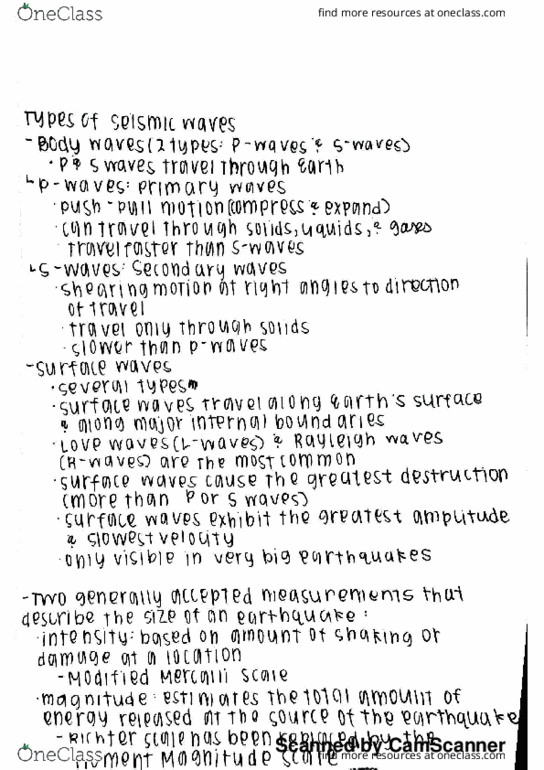 OneClass
find more resources at oneclass.com
Types of seismic waves
- Body waves (2 types: P-waves & S-waves)
· P & S waves travel through Earth
↳ P-waves: Primary waves
· push-pull motion (compress & expand)
· can travel through solids, liquids, & gases
travel faster than S-waves
↳ S-waves: Secondary waves
· shearing motion at right angles to direction
of travel
· travel only through solids
· slower than P-waves
- surface waves
· several types
· surface waves travel along Earth's surface
& along major internal boundaries
· Love waves (L-waves) & Rayleigh waves
(R-waves) are the most common
· surface waves cause the greatest destruction
(more than P or S waves)
· surface waves exhibit the greatest amplitude
& slowest velocity
· only visible in very big earthquakes
- Two generally accepted measurements that
describe the size of an earthquake:
· intensity: based on amount of shaking or
damage at a location
- Modified Mercalli Scale
· magnitude: estimates the total amount of
energy released at the source of the earthquake
- Richter scale has been replaced by the
Scanned by CamScanner
Moment Magnitude Scale
OneClass
find more resources at oneclass.com